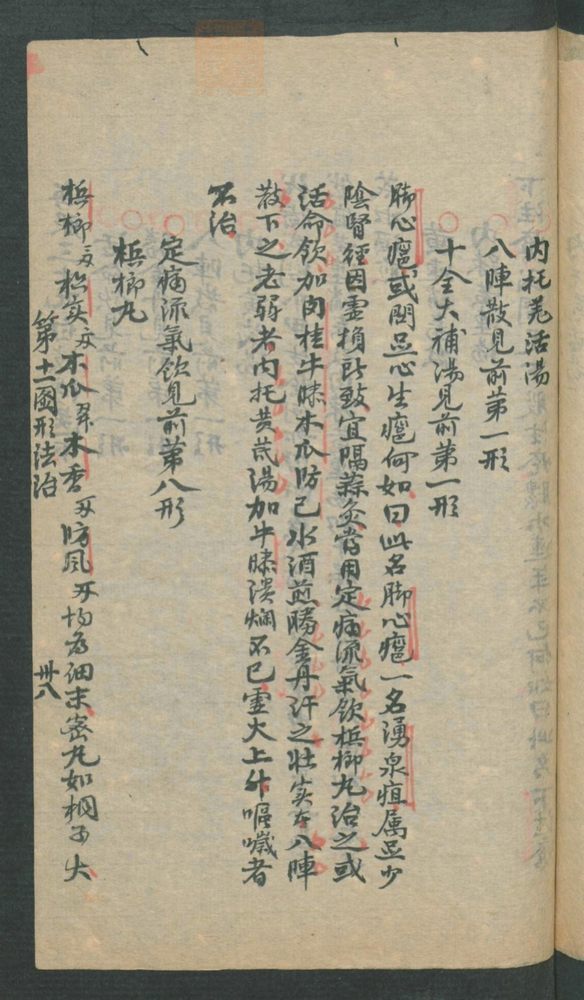 內托羗活湯
八陣散見前第一形
十全大補湯見前第一形
脚心癰或問足心生癰何如曰此名脚心癰一名湧泉疽属足少
陰腎徑因虛損所致宜隔蒜灸當用定痛流氣飲梹榔丸治之或
活命飲加肉桂牛膝木瓜防己水酒煎勝金丹汗之壯实者八陣
散下之老弱者內托黄芪湯加牛膝潰爛不已虛火上升嘔噦者
不治
定痛流氣飲見前第八形
梹榔丸
梹榔 枳实 木瓜 木香 防風 均为細末蜜丸如桐子大
第十二圖形法治
卅八